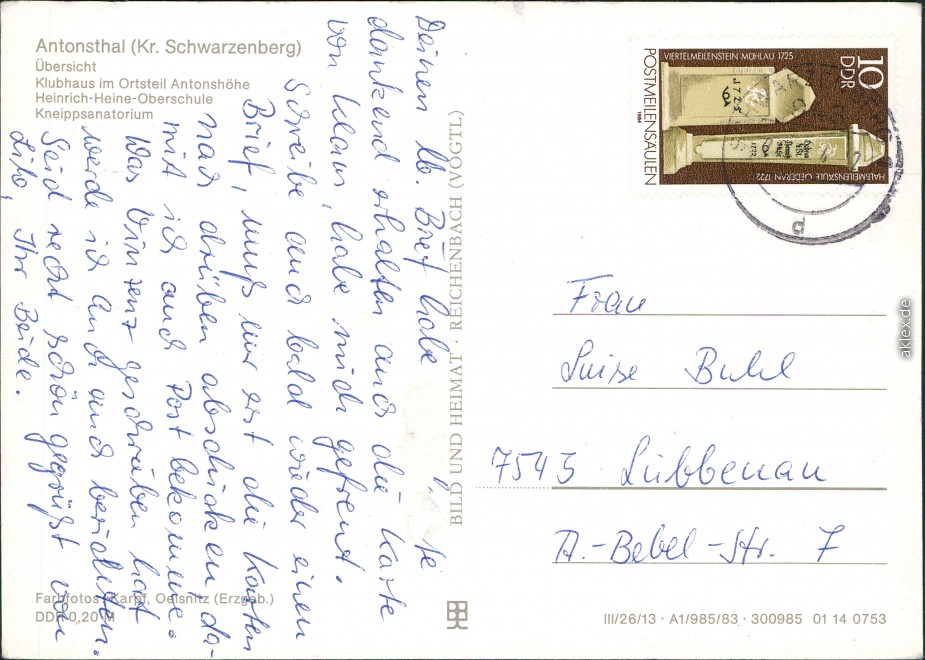 Antonsthal (Kr. Schwarzenberg)
Übersicht
Klubhaus im Ortsteil Antonshöhe
Heinrich-Heine-Oberschule
Kneippsanatorium
Deinen lb. Brief habe
dankend erhalten auch die Karte
von Klaus, habe mich gefreut.
Schreibe auch bald wieder einen
Brief, muß nur erst die Karten
nach drüben abschicken, da-
mit ich auch Post bekomme.
Was Vinzenz geschrieben hat
werde ich Euch auch berichten.
Seid recht schön gegrüßt von
Ihr Beide.
BILD UND HEIMAT · REICHENBACH (VOGTL)
Farbfotos: Karpf, Oelsnitz (Erzgeb.)
DDR 0,20 M
VIERTELMEILENSTEIN MÜHLAU 1725
10
DDR
POSTMEILENSÄULEN
1984
HALBMEILENSÄULE OEDERAN 1722
d
Frau
Luise Buhl
7543 Lübbenau
A.-Bebel-Str. 7
III/26/13 · A1/985/83 · 300985 01 14 0753
aklex.de